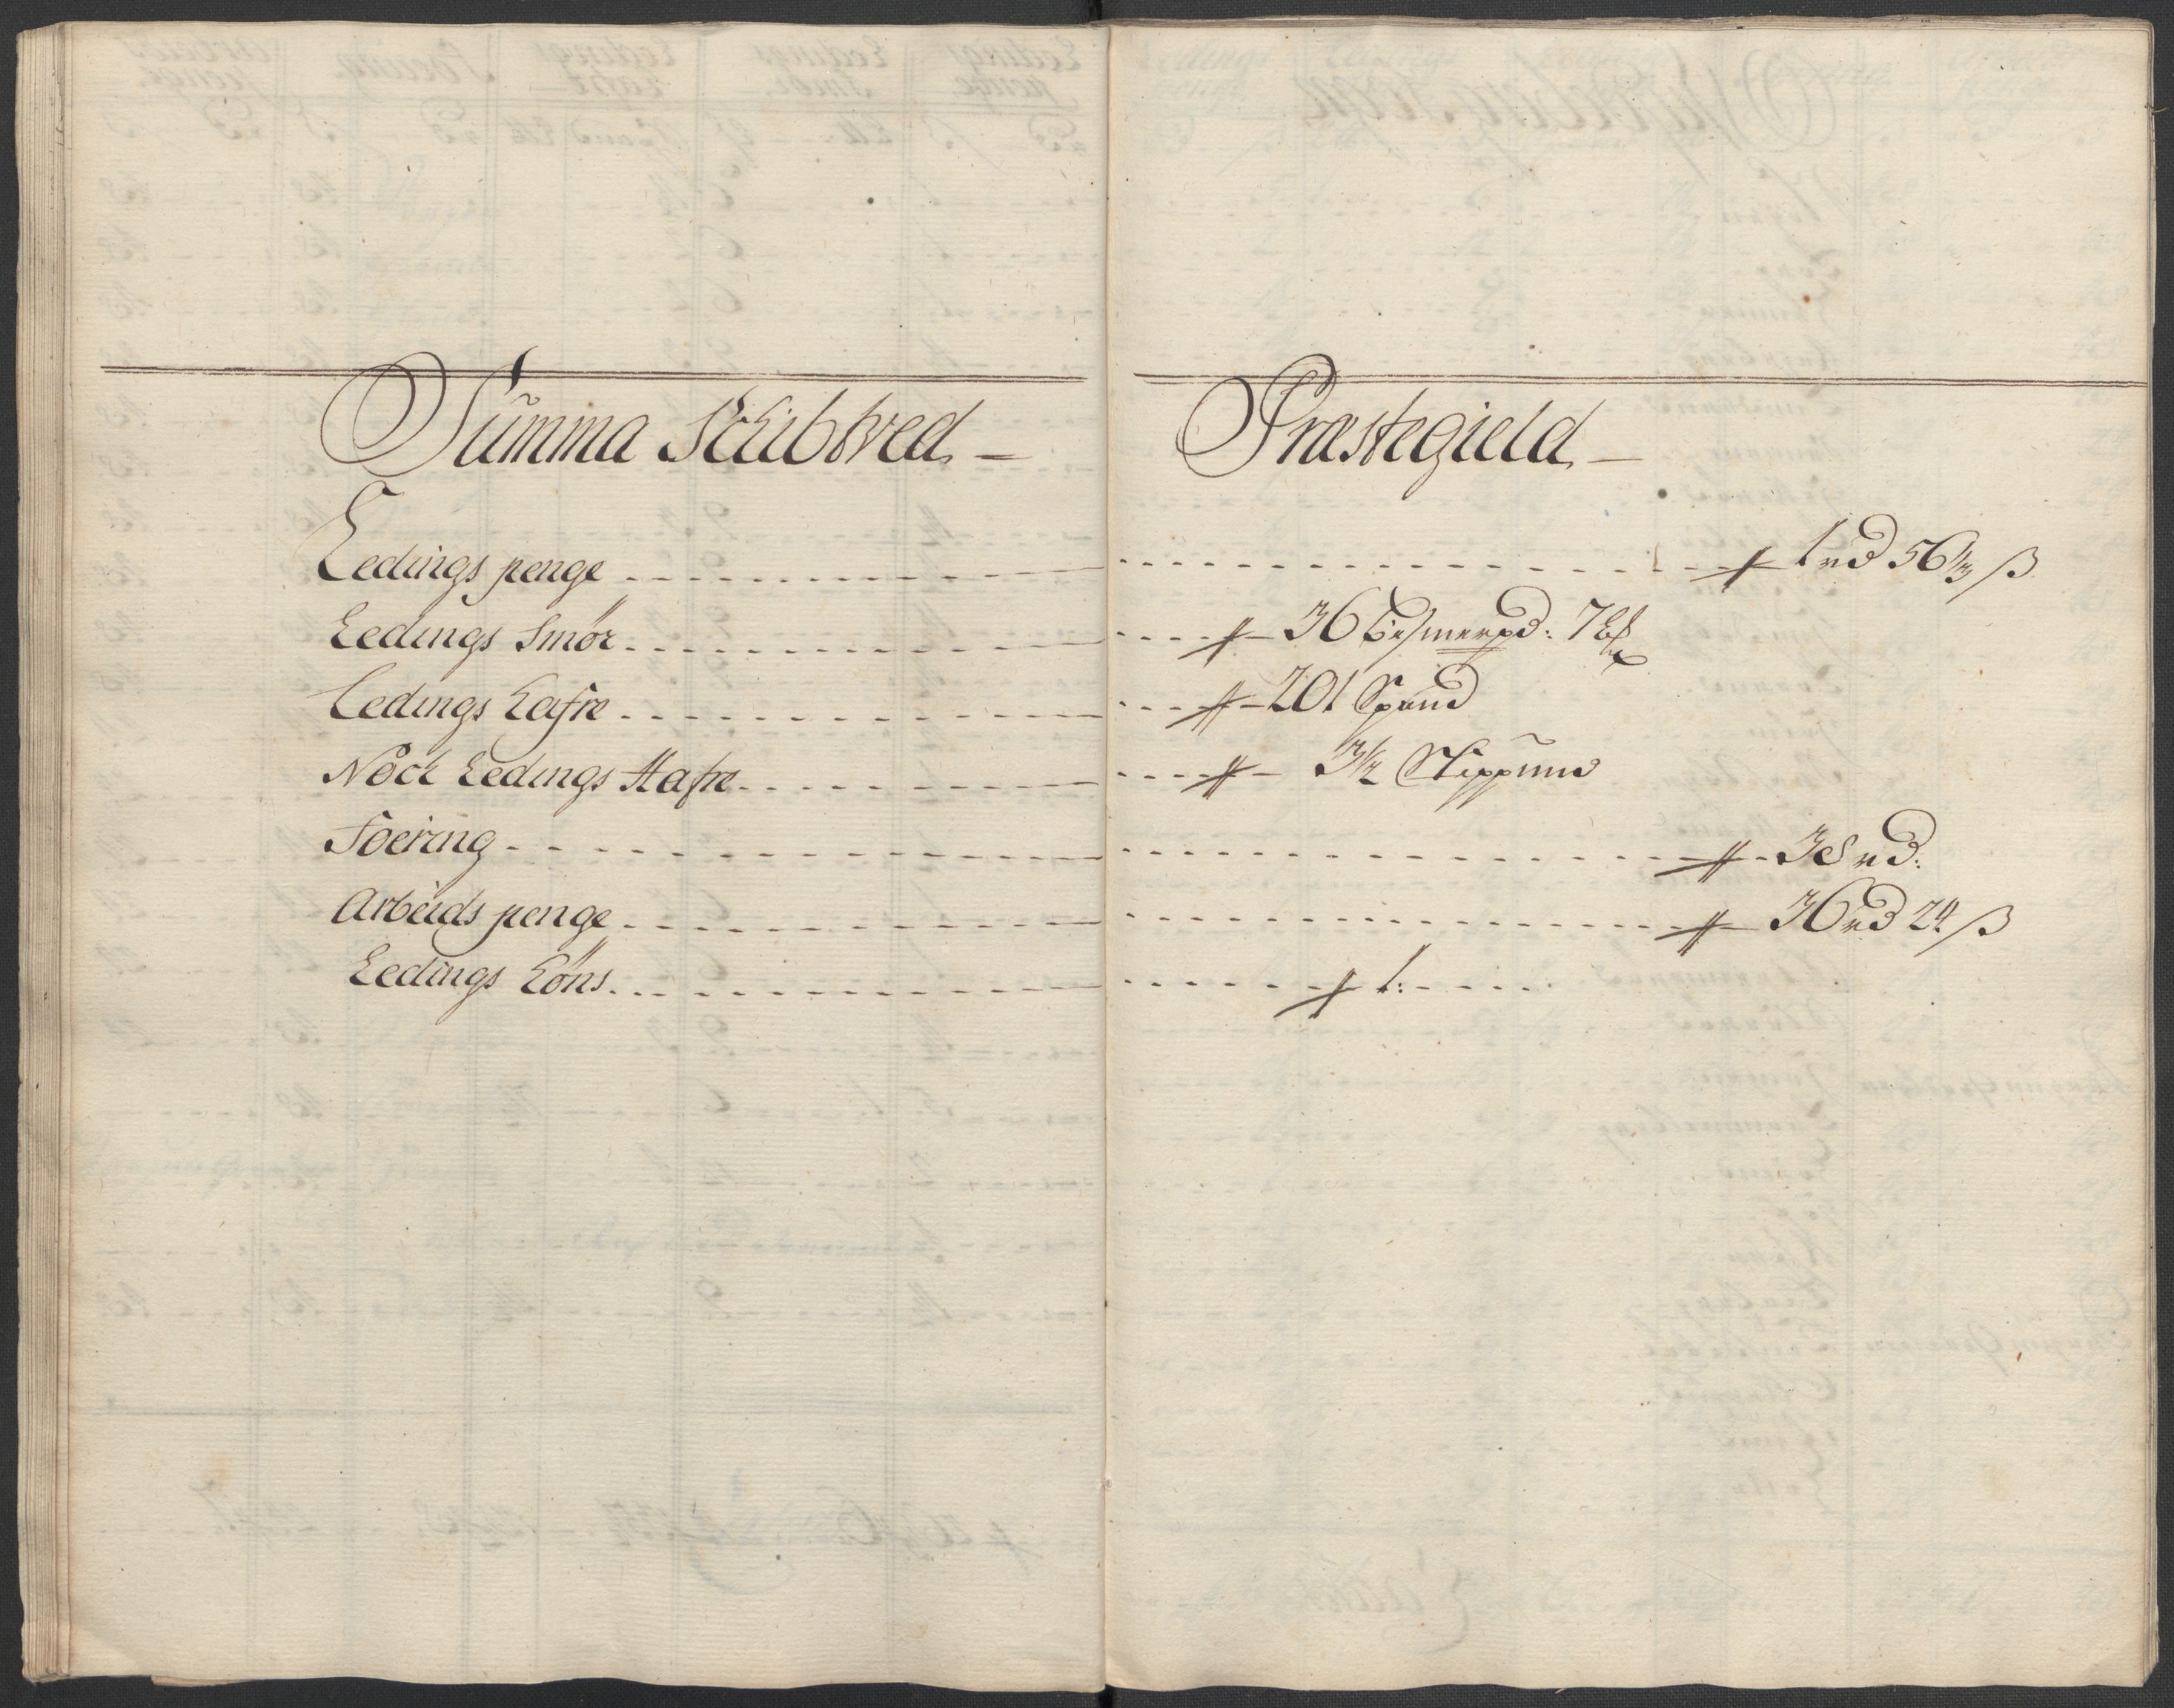 Summa Schibtved – Præstegield –
Ledings penge - - - - 1 rd 56⅓ ß
Ledings Smör - - - - 36 bismerpd: 7
Ledings Hafre - - - - 201 Spand
Noch Ledings Hafre - - - - 3½ Skippund
Foering - - - - 38 rd:
Arbeids penge - - - - 36 rd 24 ß
Ledings Höns - - - - 1: